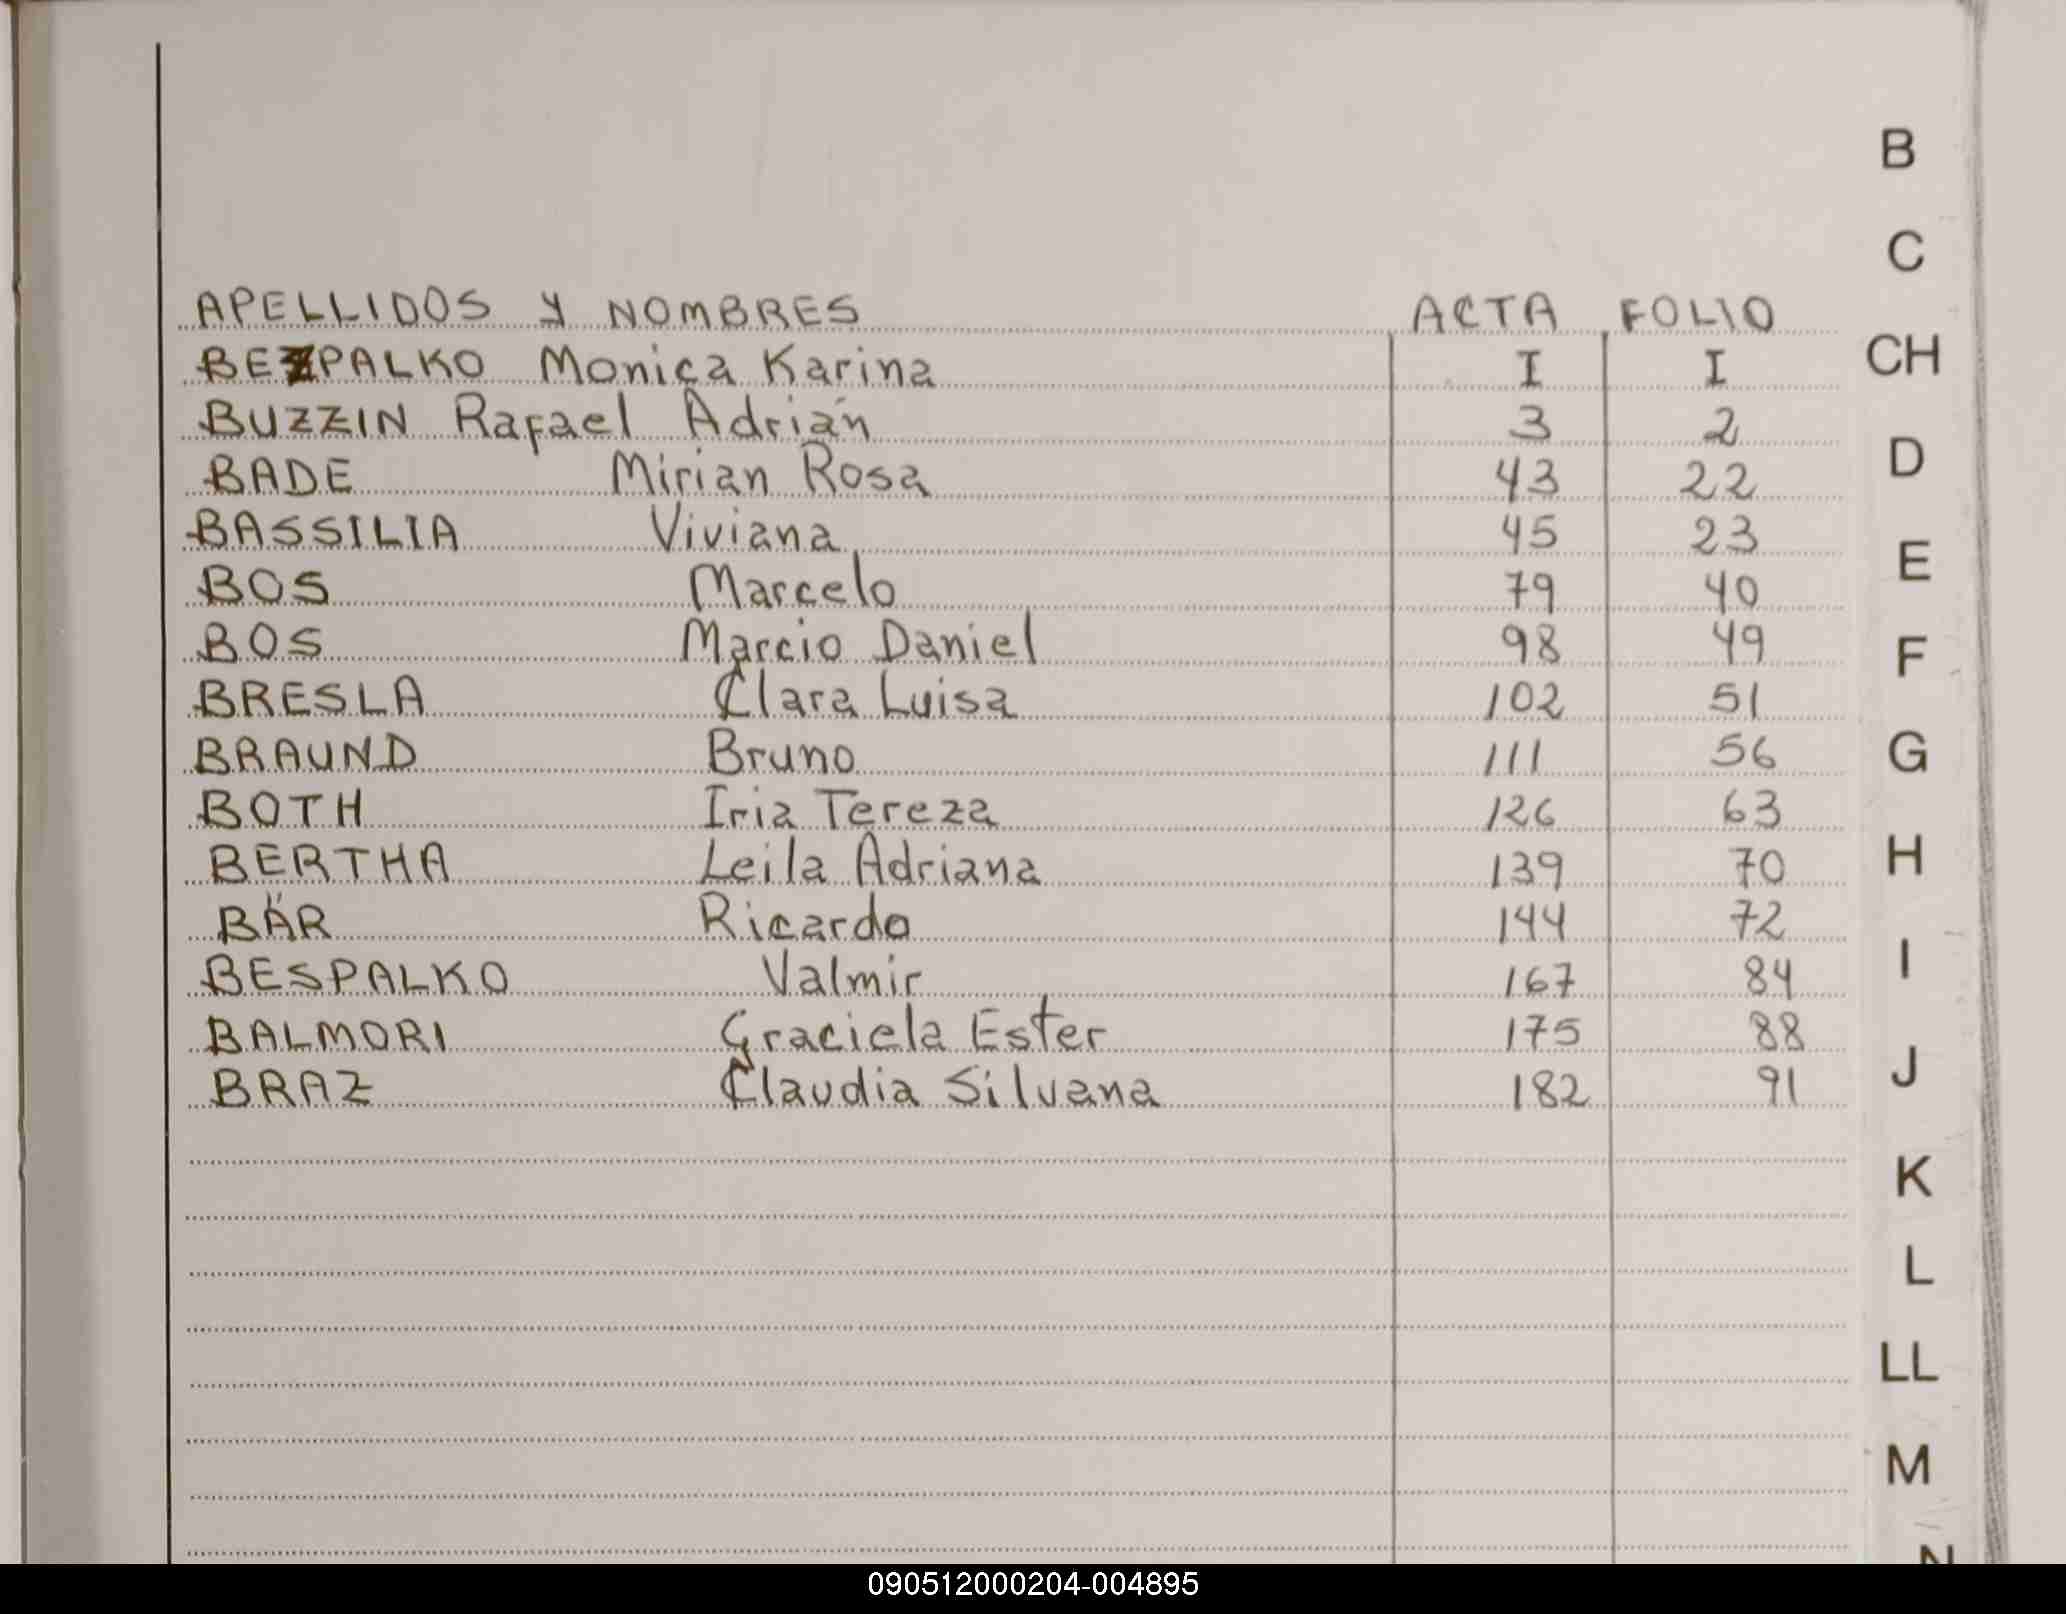 APELLIDOS Y NOMBRES ACTA FOLIO
BEZPALKO Monica Karina I I
BUZZIN Rafael Adrián 3 2
BADE Mirian Rosa 43 22
BASSILIA Viviana 45 23
BOS Marcelo 79 40
BOS Marcio Daniel 98 49
BRESLA Clara Luisa 102 51
BRAUND Bruno 111 56
BOTH Iria Tereza 126 63
BERTHA Leila Adriana 139 70
BÄR Ricardo 144 72
BESPALKO Valmir 167 84
BALMORI Graciela Ester 175 88
BRAZ Claudia Silvana 182 91
B
C
CH
D
E
F
G
H
I
J
K
L
LL
M
N
090512000204-004895